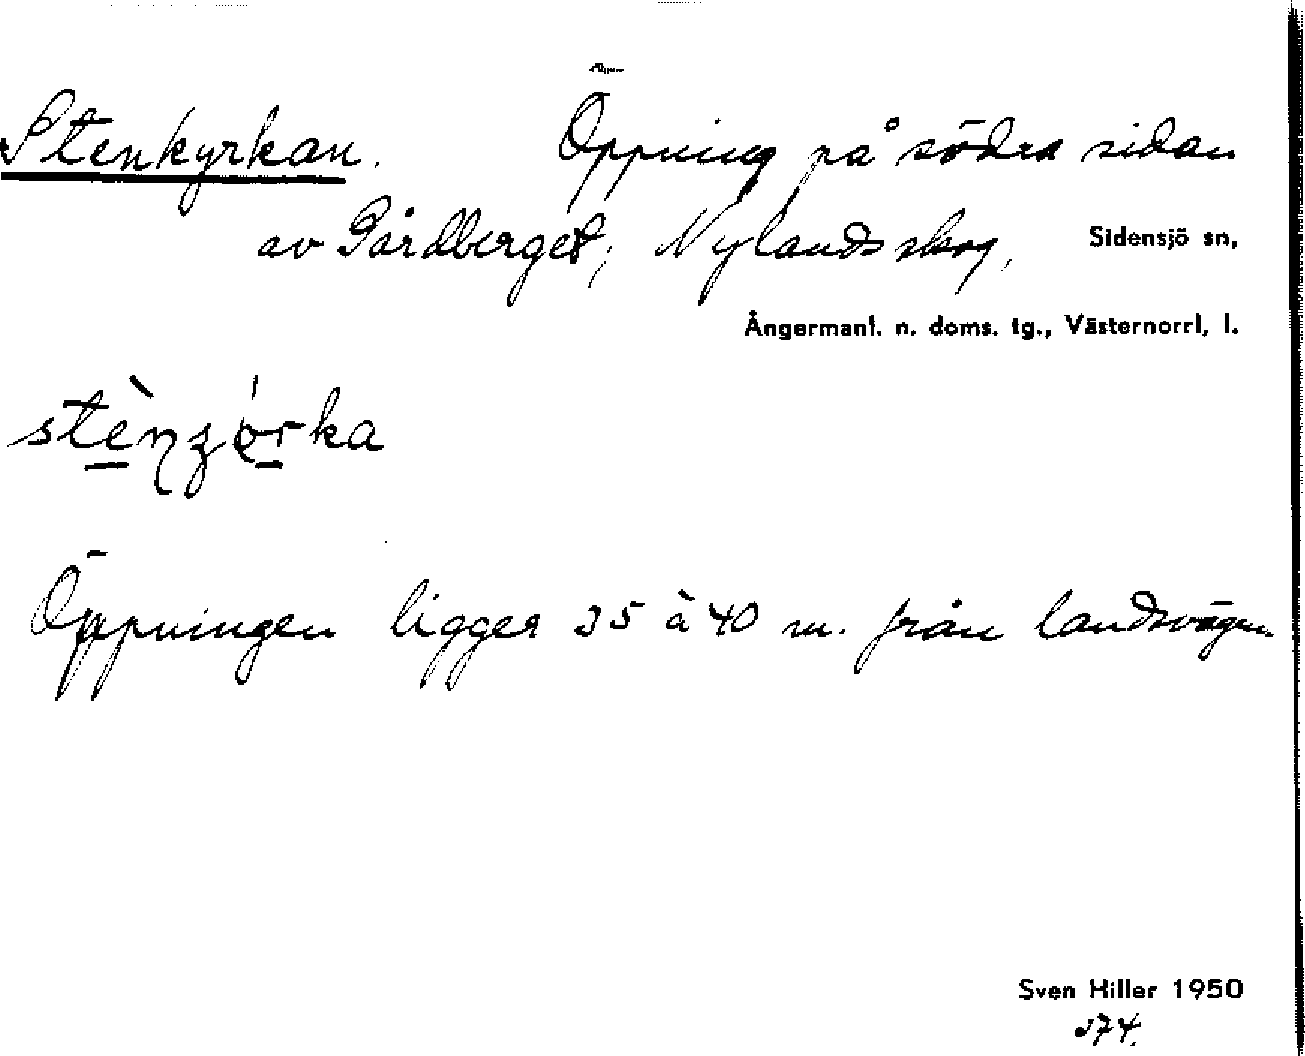 Stenkyrkan. Öppning på södra sidan
av Gårdberget, Nylandsskog, Sidensjö sn,
Ångermanl. n. doms. tg., Västernorrl, l.
Öppningen ligger 35 à 40 m. från landsvägen
Sven Hiller 1950
374.